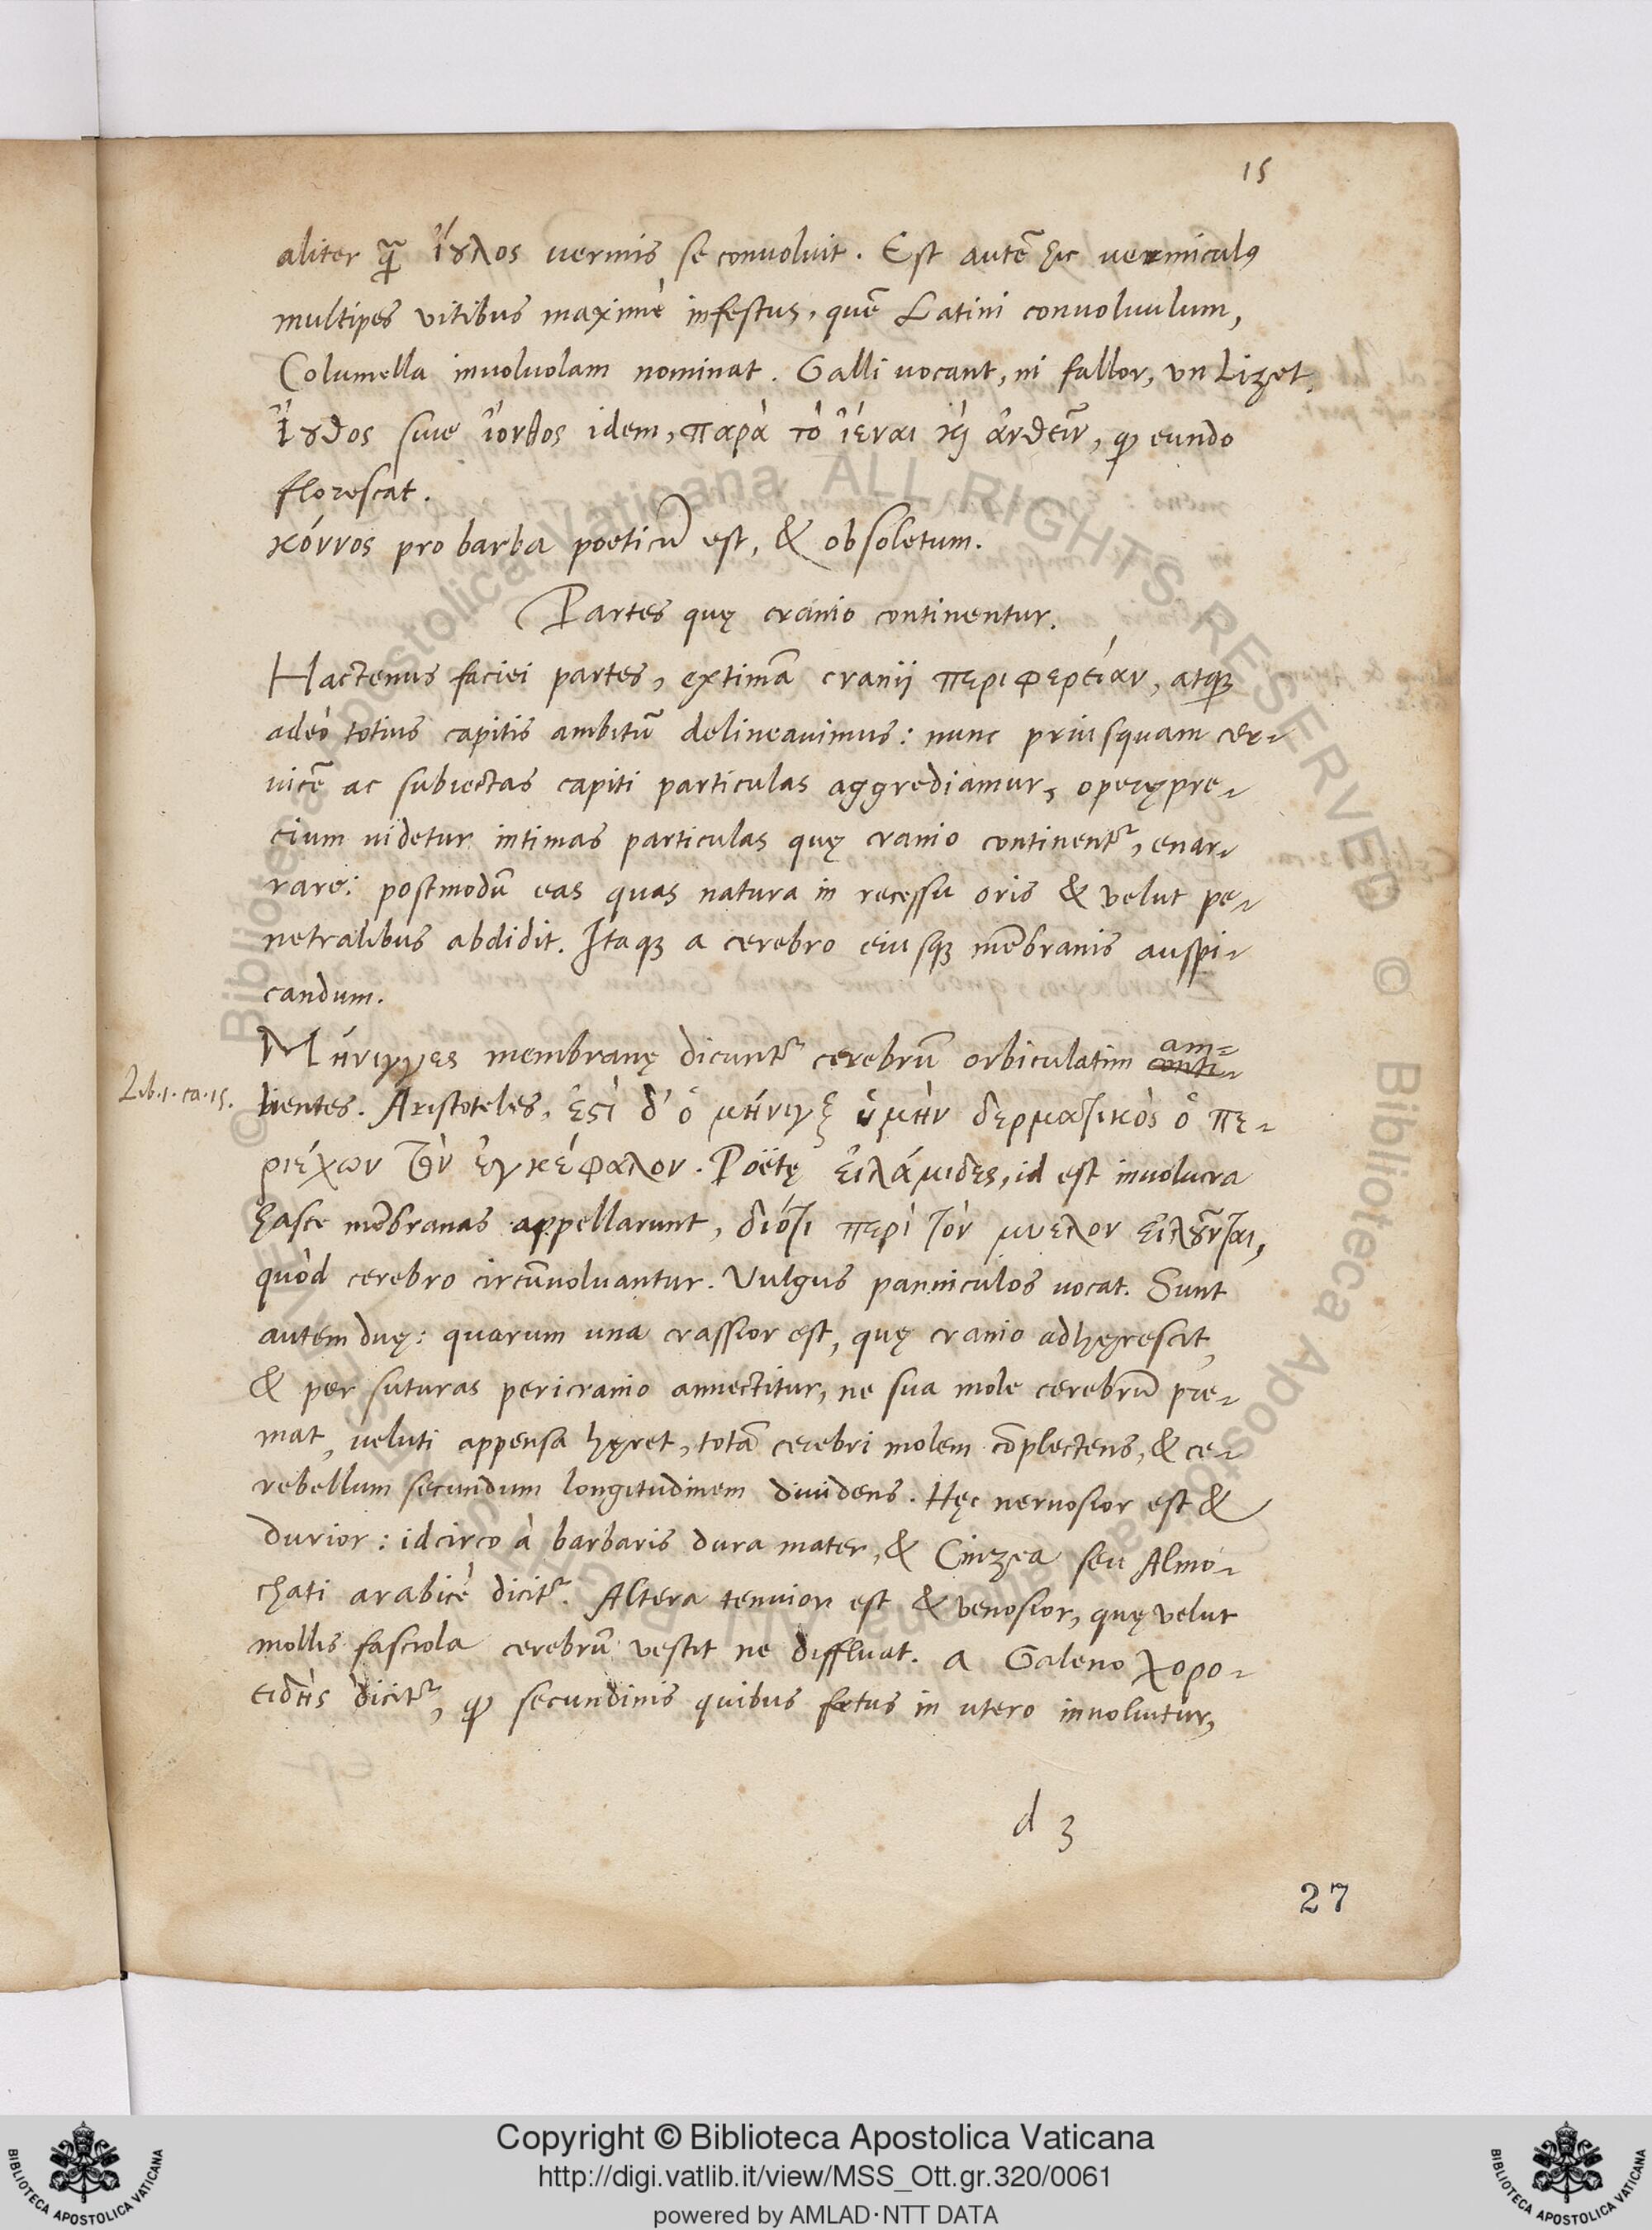 15
aliter q̃ ἴȣλος uermis se conuoluit. Est autẽ hic uermiculꝰ
multipes vitibus maximè infestus, quẽ Latini conuoluulum,
Columella inuoluolam nominat. Galli uocant, ni fallor, vn Lizet.
ἴȣθος siue ἴονθος idem, παρὰ τὸ ἰέναι κ̀ ἀνθεῖν, ꝙ eundo
florescat.
κόννος pro barba poeticũ est, & obsoletum.
Partes quę cranio continentur.
Hactenus faciei partes, extimã cranij περιφερείαν, atqꝫ
adeò totius capitis ambitũ delineauimus: nunc priusquam cer-
uicẽ ac subiectas capiti particulas aggrediamur, operępre-
cium uidetur intimas particulas quę cranio continentᷣ, enar-
rare: postmodũ eas quas natura in recessu oris & velut pe-
netralibus abdidit. Itaqꝫ a cerebro eiusqꝫ mẽbranis auspi-
candum.
Μήνιγγες membranę dicuntᷣ cerebrũ orbiculatim conti-
am-
Lib.1.ca.15.
bientes. Aristoteles, ἐςὶ δ' ὁ μήνιγξ ὑμὴν δερματικὸς ὁ πε-
ριέχων τὸν ἐγκέφαλον. Poëtę εἰλάμιδες, id est inuolucra
hasce mẽbranas appellarunt, διότι περὶ τὸν μυελον εἰλȣ͂νται,
quòd cerebro circũuoluantur. Vulgus panniculos uocat. Sunt
autem duę: quarum una crassior est, quę cranio adhęrescit,
& per suturas pericranio annectitur, ne sua mole cerebrũ pre-
mat, ueluti appensa hęret, totã cerebri molem cõplectens, & ce-
rebellum secundum longitudinem diuidens. Hęc neruosior est &
durior: idcirco à barbaris dura mater, & Cinzea seu Almo-
chati arabicè dicitᷣ. Altera tenuior est & venosior, quę velut
mollis fasciola cerebrũ vestit ne diffluat. a Galeno χορο-
ειδὴς dicitᷣ, ꝙ secundinis quibus fętus in utero inuoluitur,
d 3
27
Copyright © Biblioteca Apostolica Vaticana
http://digi.vatlib.it/view/MSS_Ott.gr.320/0061
powered by AMLAD·NTT DATA
BIBLIOTECA APOSTOLICA VATICANA
BIBLIOTECA APOSTOLICA VATICANA